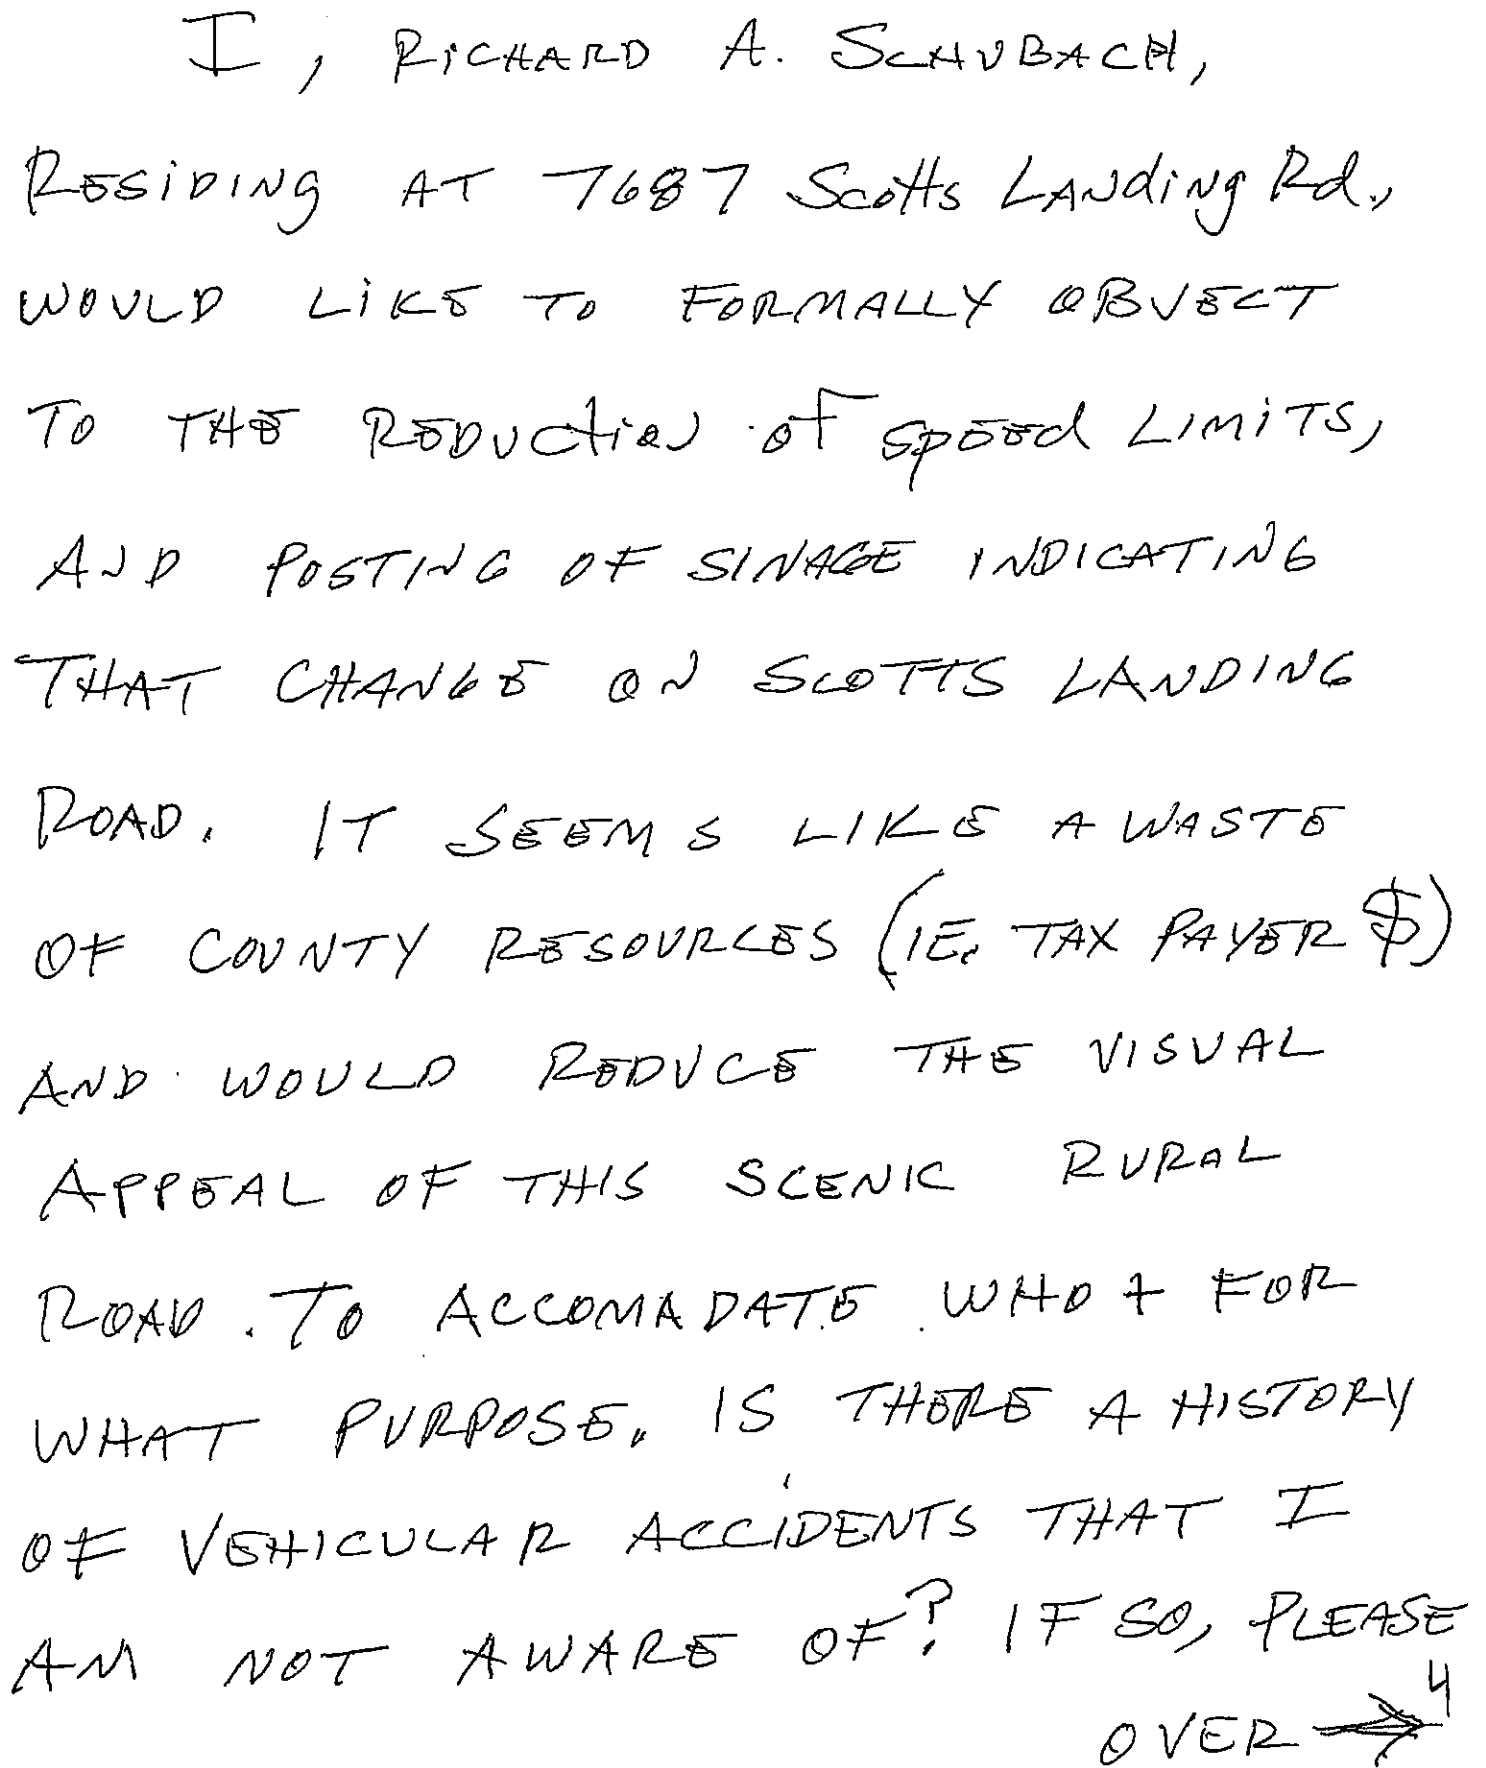 I, RICHARD A. SCHUBACH,
RESIDING AT 7687 Scotts LANding Rd.,
WOULD LIKE TO FORMALLY OBJECT
TO THE REDUction of speed LIMITS,
AND POSTING OF SINAGE INDICATING
THAT CHANGE ON SCOTTS LANDING
ROAD. IT SEEMS LIKE A WASTE
OF COUNTY RESOURCES (IE. TAX PAYER $)
AND WOULD REDUCE THE VISUAL
APPEAL OF THIS SCENIC RURAL
ROAD. TO ACCOMADATE WHO + FOR
WHAT PURPOSE. IS THERE A HISTORY
OF VEHICULAR ACCIDENTS THAT I
AM NOT AWARE OF? IF SO, PLEASE
4
OVER →